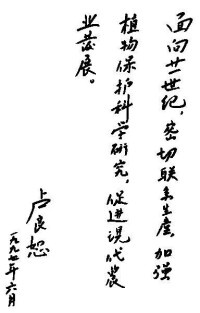 面向廿一世纪，密切联系生产，加强
植物保护科学研究，促进现代农
业发展。
卢良恕
一九九七年六月